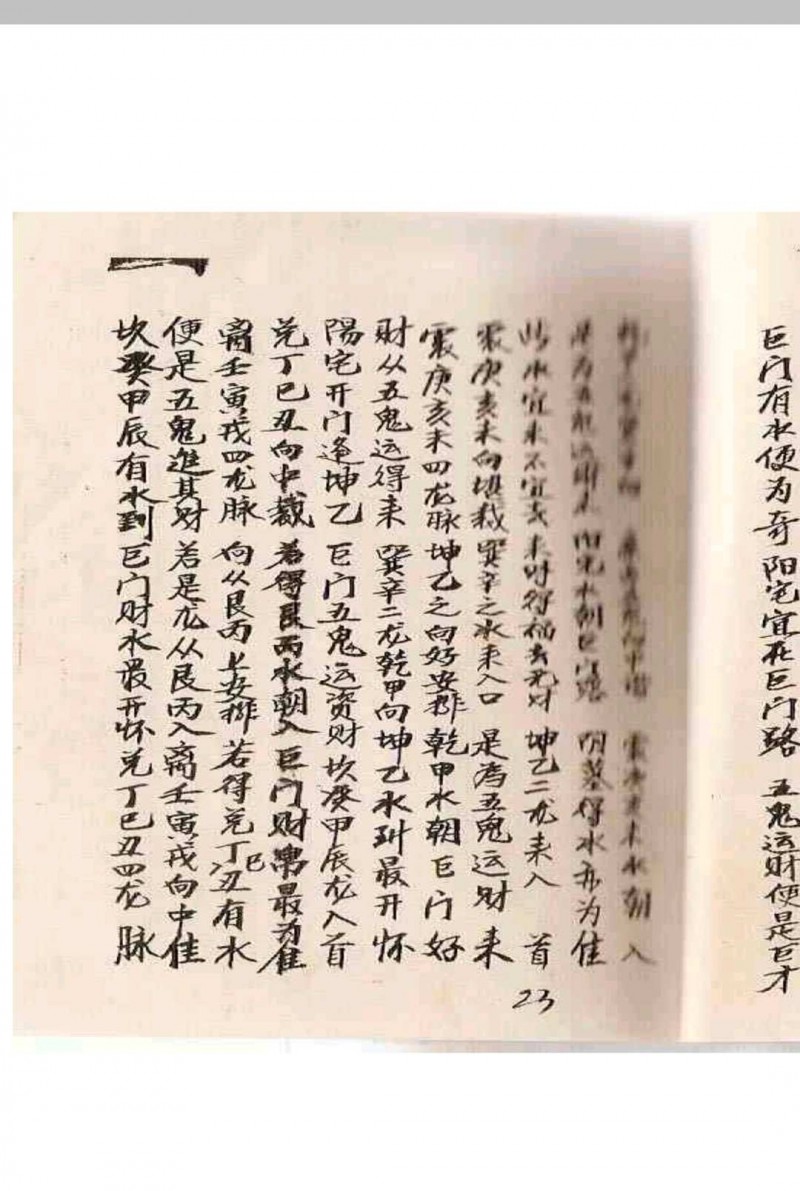 巨门有水便为奇 阳宅宜在巨门路 五鬼运财便是巨才
震庚亥未水朝入
是为五鬼运财来 阳宅水朝巨门路 阴墓得水亦为佳
此水宜来不宜去 来财得福去无财 坤乙二龙来入首
震庚亥未向堪裁 巽辛之水来入口 是為五鬼运财来
震庚亥未四龙脉 坤乙之向好安排 乾甲水朝巨门好
财从五鬼运得来 巽辛二龙乾甲向 坤乙水到最开怀
陽宅开门逢坤乙 巨门五鬼运资财 坎癸甲辰龙入首
兑丁巳丑向中裁 若得艮丙水朝入 巨门财帛最为佳
离壬寅戌四龙脉 向从艮丙上安排 若得兑丁巳丑有水
便是五鬼進其财 若是龙从艮丙入 离壬寅戌向中佳
坎癸甲辰有水到 巨门财水最开怀 兑丁巳丑四龙脉
23